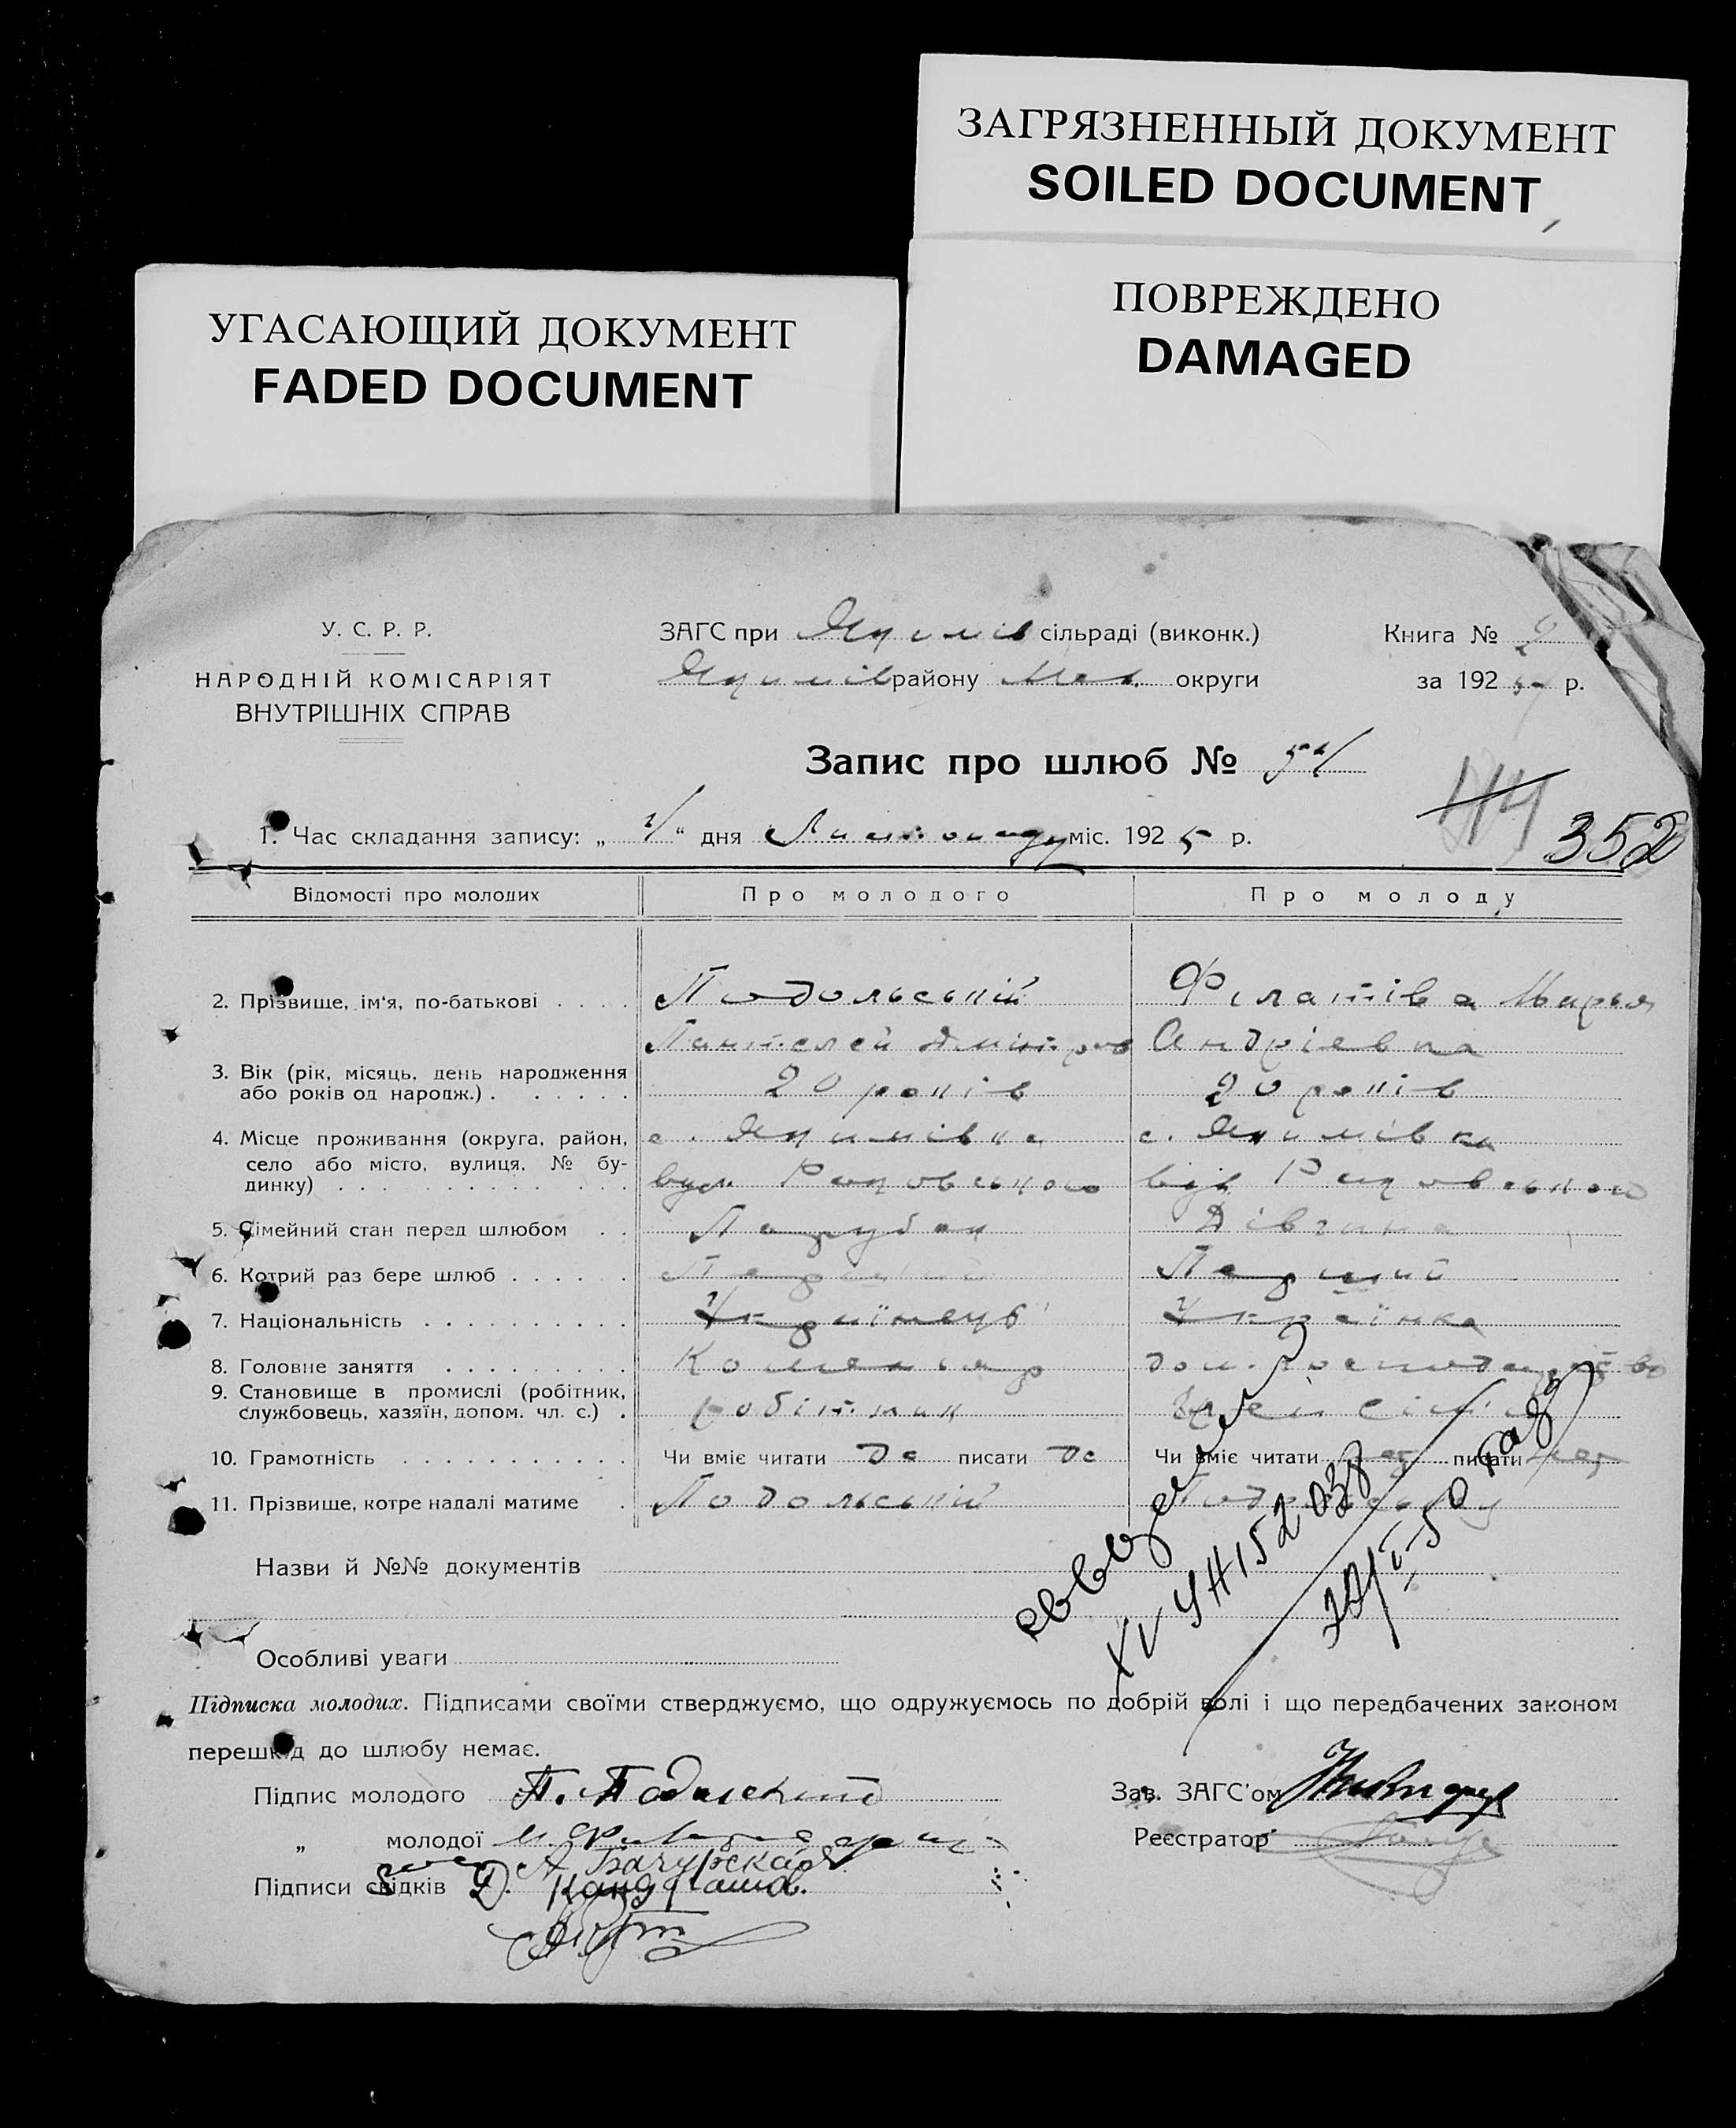 ЗАГРЯЗНЕННЫЙ ДОКУМЕНТ
SOILED DOCUMENT
УГАСАЮЩИЙ ДОКУМЕНТ
FADED DOCUMENT
ПОВРЕЖДЕНО
DAMAGED
У. С. Р. Р.
НАРОДНІЙ КОМІСАРІЯТ
ВНУТРІШНІХ СПРАВ
ЗАГС при Якимів сільраді (виконк.)
Якимів району Мел. округи
Книга № 2
за 192 р.
Запис про шлюб №
114
352
1. Час складання запису: „ “ дня Листопаду міс. 1925 р.
Відомості про молодих Про молодого Про молоду
2. Прізвище, ім'я, по-батькові Подольській Філатіва Марья
Пантелей Дмитров Андріевна
3. Вік (рік, місяць, день народження
або років од народж.) 20 років 20 років
4. Місце проживання (округа, район, с. Якимівка с. Якимівка
село або місто, вулиця, № бу-
динку) вул. Раковського вул. Раковського
5. Сімейний стан перед шлюбом Парубок Дівчина
6. Котрий раз бере шлюб Перший Перший
7. Національність Українець Українка
8. Головне заняття дом. господарство
9. Становище в промислі (робітник,
службовець, хазяїн, допом. чл. с.) робітник член сім'ї
10. Грамотність Чи вміє читати да писати да Чи вміє читати писати
11. Прізвище, котре надалі матиме Подольській
XV УН 152038
Назви й №№ документів
Особливі уваги
Підписка молодих. Підписами своїми стверджуємо, що одружуємось по добрій волі і що передбачених законом
перешкод до шлюбу немає.
Підпис молодого П. Подольский
„ молодої М.
А. Бачурская
Підписи свідків Д.
Зав. ЗАГС'ом
Реєстратор